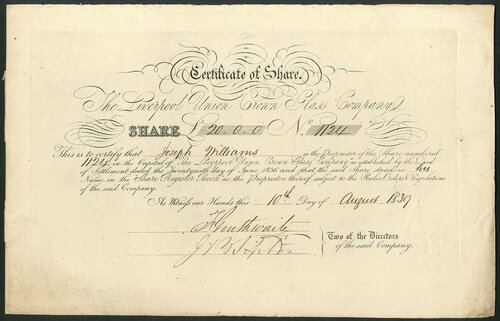 Certificate of Share.
The Liverpool Union Crown Glass Company
SHARE £ 20.0.0 No. 1124
This is to certify that Joseph Williams is the Proprietor of the Share numbered
1124 in the Capital of The Liverpool Union Crown Glass Company as established by the Deed
of Settlement dated the Twentysixth day of June 1836 and that the said Share stands in his
Name in the Share Register Book as the Proprietor thereof subject to the Rules, Orders & Regulations
of the said Company.
As Witness our Hands this 10th Day of August 1839
Two of the Directors
of the said Company.